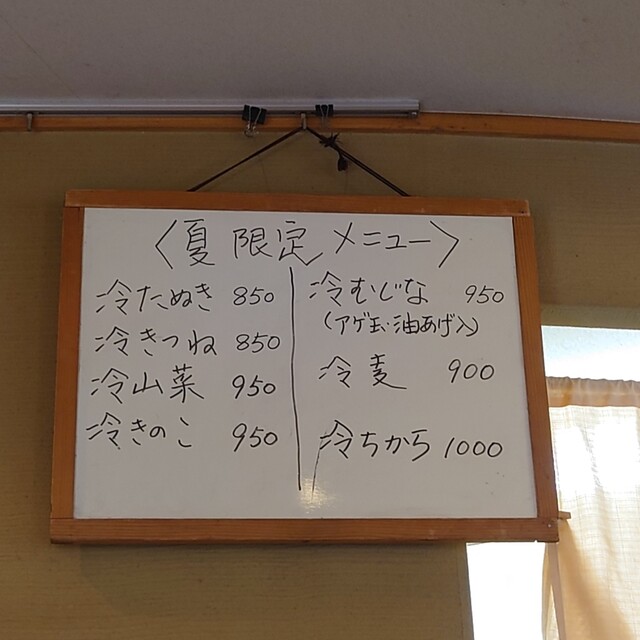 〈夏限定メニュー〉
冷たぬき 850
冷きつね 850
冷山菜 950
冷きのこ 950
冷むじな 950
(アゲ玉・油あげ入)
冷麦 900
冷ちから 1000